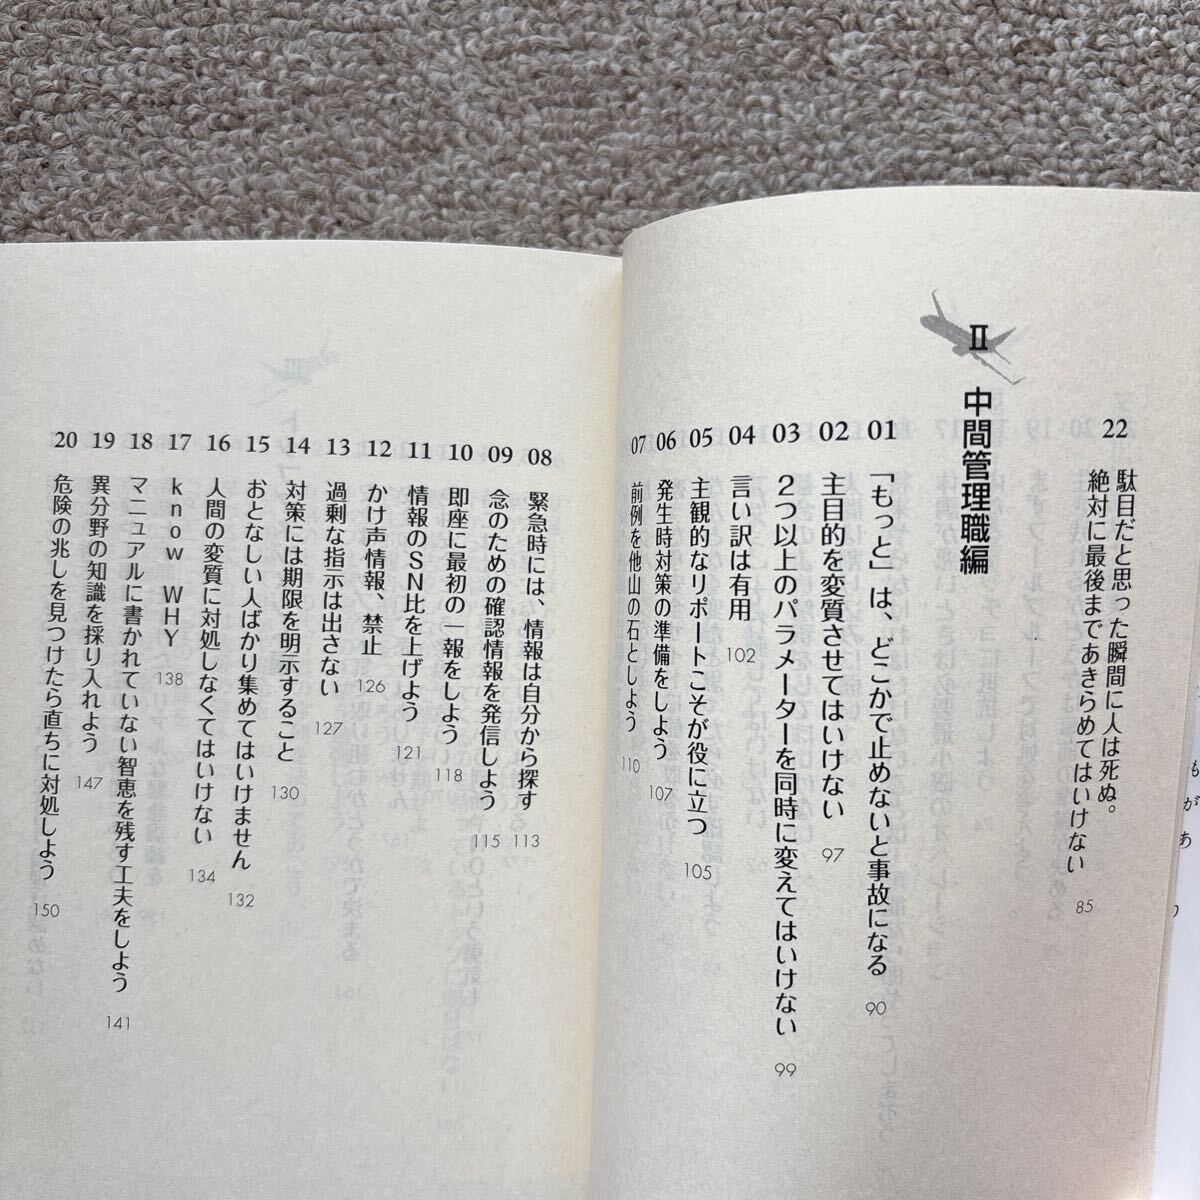 22
駄目だと思った瞬間に人は死ぬ。
絶対に最後まであきらめてはいけない
85
Ⅱ 中間管理職編
01 「もっと」は、どこかで止めないと事故になる 90
02 主目的を変質させてはいけない 97
03 2つ以上のパラメーターを同時に変えてはいけない 99
04 言い訳は有用 102
05 主観的なリポートこそが役に立つ 105
06 発生時対策の準備をしよう 107
07 前例を他山の石としよう 110
08 緊急時には、情報は自分から探す 113
09 念のための確認情報を発信しよう 115
10 即座に最初の一報をしよう 118
11 情報のSN比を上げよう 121
12 かけ声情報、禁止 126
13 過剰な指示は出さない 127
14 対策には期限を明示すること 130
15 おとなしい人ばかり集めてはいけません 132
16 人間の変質に対処しなくてはいけない 134
17 know WHY 138
18 マニュアルに書かれていない智恵を残す工夫をしよう 141
19 異分野の知識を採り入れよう 147
20 危険の兆しを見つけたら直ちに対処しよう 150